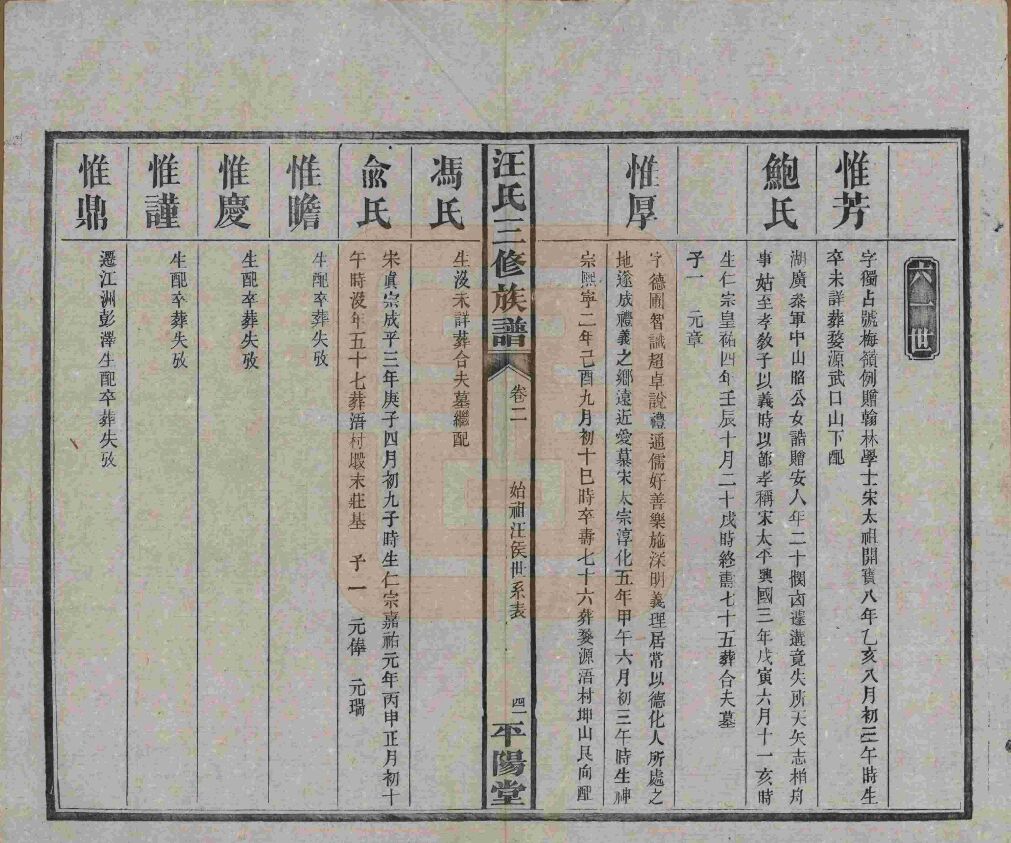 六十世
惟芳
字獨占號梅嶺例贈翰林學士宋太祖開寶八年乙亥八月初三午時生
卒未詳葬婺源武口山下配
鮑氏
湖廣叅軍中山賂公女誥贈安人年二十憫凶遽遘竟失所天矢志柏舟
事姑至孝敎子以義時以節孝稱宋太平興國三年戊寅六月十一亥時
生仁宗皇祐四年壬辰十月二十戌時終壽七十五葬合夫墓
子一 元章
惟厚
字德圃智識超卓說禮通儒好善樂施深明義理居常以德化人所處之
地遂成禮義之鄉遠近愛慕宋太宗淳化五年甲午六月初三午時生神
宗熙寧二年己酉九月初十巳時卒壽七十六葬婺源浯村坤山艮向配
汪氏三修族譜
卷二
始祖汪侯世系表
四一
平陽堂
馮氏
生沒未詳葬合夫墓繼配
兪氏
宋眞宗成平三年庚子四月初九子時生仁宗嘉祐元年丙申正月初十
午時沒年五十七葬浯村塅末莊基 子一 元俸 元瑞
惟瞻
生配卒葬失攷
惟慶
生配卒葬失攷
惟謹
生配卒葬失攷
惟鼎
遷江洲彭澤生配卒葬失攷